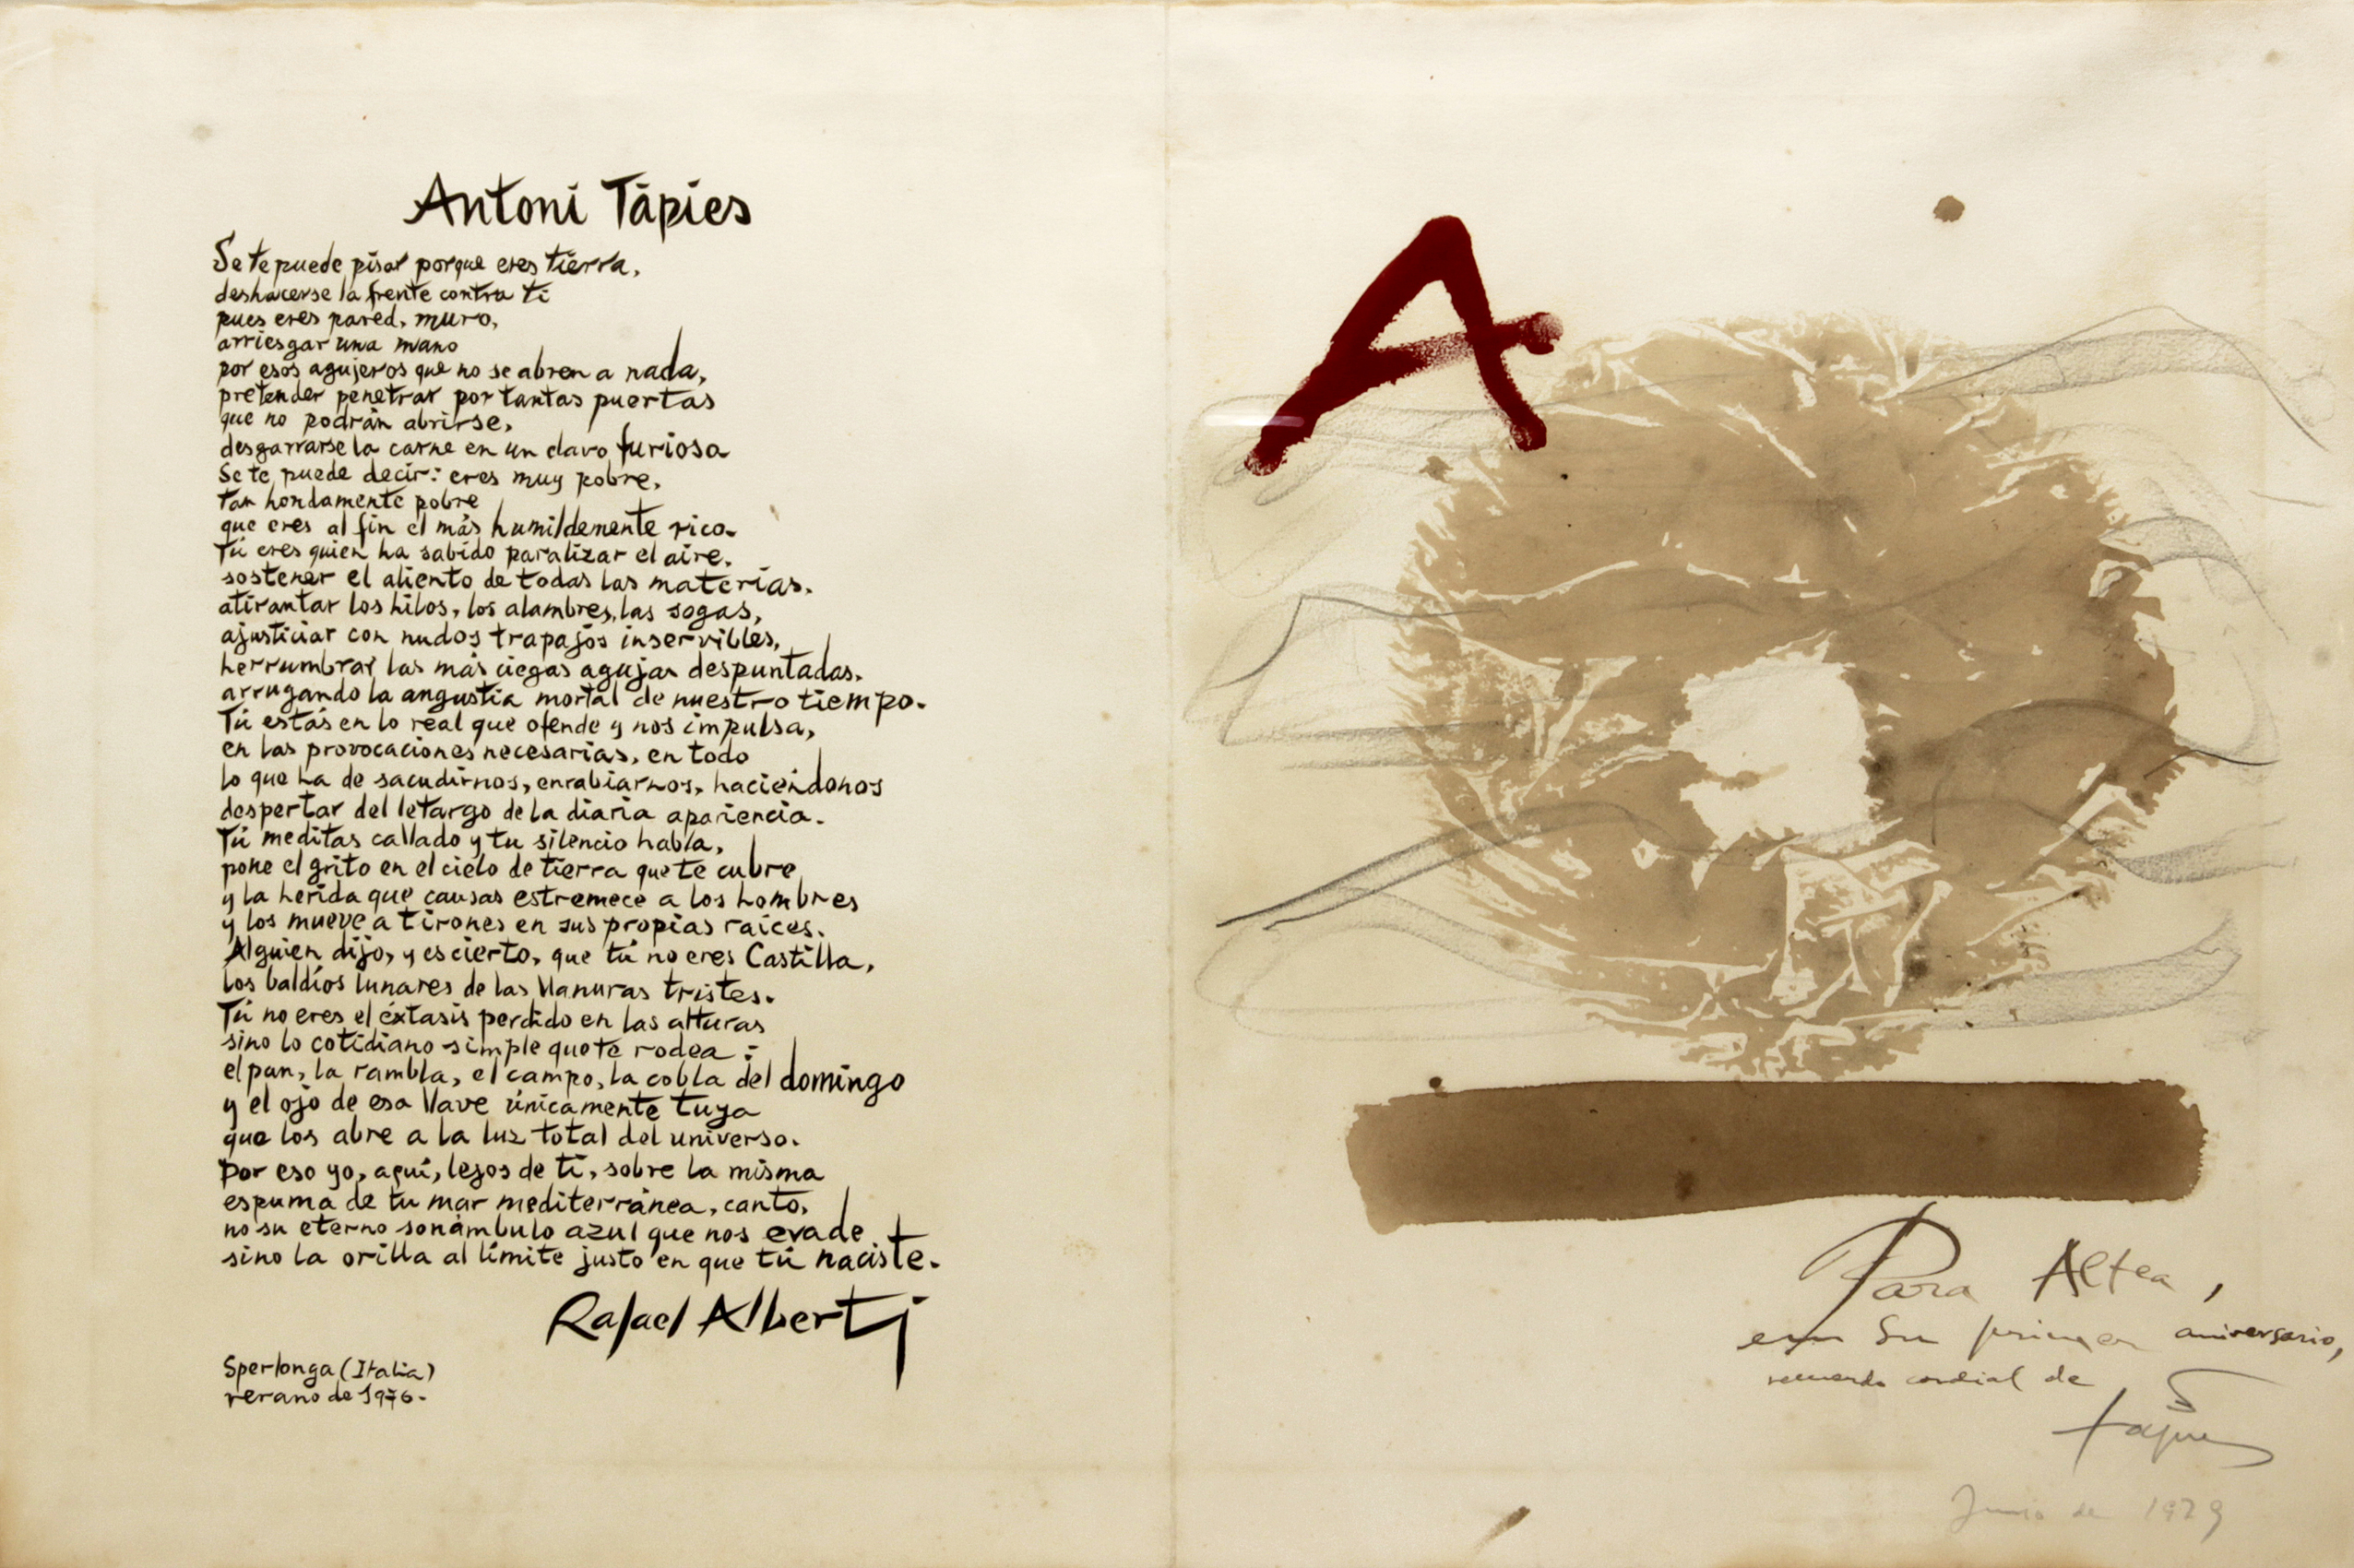 Antoni Tápies
Se te puede pisar porque eres tierra,
deshacerse la frente contra ti
pues eres pared, muro,
arriesgar una mano
por esos agujeros que no se abren a nada,
pretender penetrar por tantas puertas
que no podrán abrirse,
desgarrarse la carne en un clavo furiosa
Se te puede decir: eres muy pobre,
tan hondamente pobre
que eres al fin el más humildemente rico.
Tú eres quien ha sabido paralizar el aire,
sostener el aliento de todas las materias.
atirantar los hilos, los alambres, las sogas,
ajusticiar con nudos trapajos inservibles,
herrumbrar las más ciegas agujas despuntadas.
arrugando la angustia mortal de nuestro tiempo.
Tú estás en lo real que ofende y nos impulsa,
en las provocaciones necesarias, en todo
lo que ha de sacudirnos, enrabiarnos, haciéndonos
despertar del letargo de la diaria apariencia.
Tú meditas callado y tu silencio habla,
pone el grito en el cielo de tierra que te cubre
y la herida que causas estremece a los hombres
y los mueve a tirones en sus propias raíces.
Alguien dijo, y es cierto, que tú no eres Castilla,
los baldíos lunares de las llanuras tristes.
Tú no eres el éxtasis perdido en las alturas
sino lo cotidiano simple que te rodea:
el pan, la rambla, el campo, la cobla del domingo
y el ojo de esa llave únicamente tuya
que los abre a la luz total del universo.
Por eso yo, aquí, lejos de ti, sobre la misma
espuma de tu mar mediterránea, canto,
no su eterno sonámbulo azul que nos evade
sino la orilla al límite justo en que tú naciste.
Rafael Alberti
Sperlonga (Italia)
verano de 1976.
A
Para Altea,
en su primer aniversario,
recuerdo cordial de
Tàpies
Junio de 1979